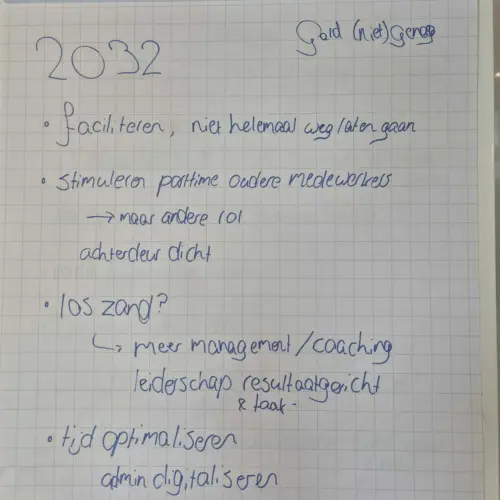 2032
Gold (niet) Genoeg
• faciliteren, niet helemaal weg laten gaan
• stimuleren parttime oudere medewerkers
→ maar andere rol
achterdeur dicht
• los zand?
↳ meer management/coaching
leiderschap resultaatgericht
& taak -
• tijd optimaliseren
admin digitaliseren